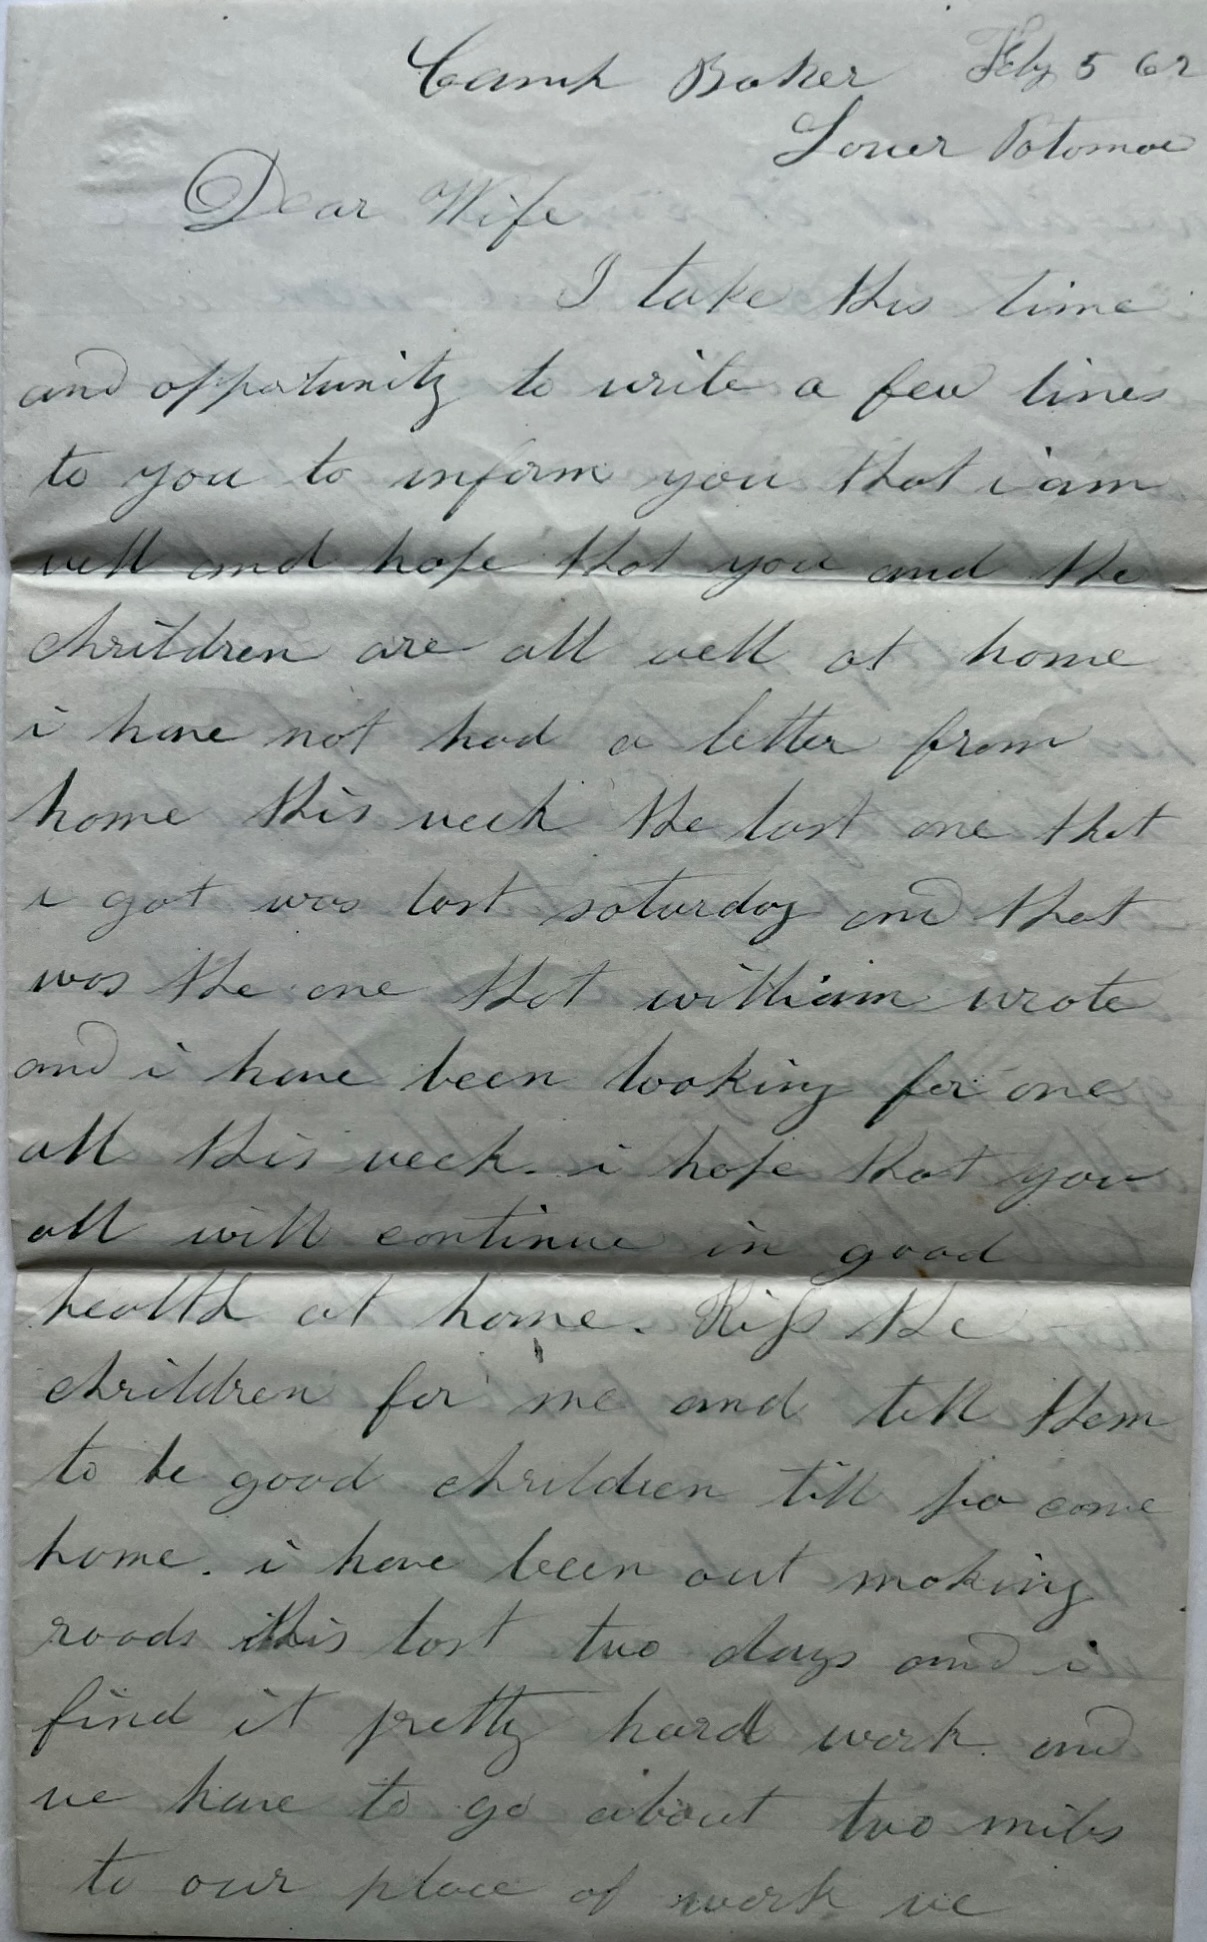 Camp Baker Feby 5 62
Lower Potomac
Dear Wife
I take this time
and opportunity to write a few lines
to you to inform you that i am
well and hope that you and the
chrildren are all well at home
i have not had a letter from
home this week the last one that
i got was last saturday and that
was the one that william wrote
and i have been looking for one
all this week. i hope that you
all will continue in good
health at home. Kiss the
chrildren for me and tell them
to be good chrildren till pa come
home. i have been out making
roads this last two days and i
find it pretty hard work and
we have to go about two miles
to our place of work we